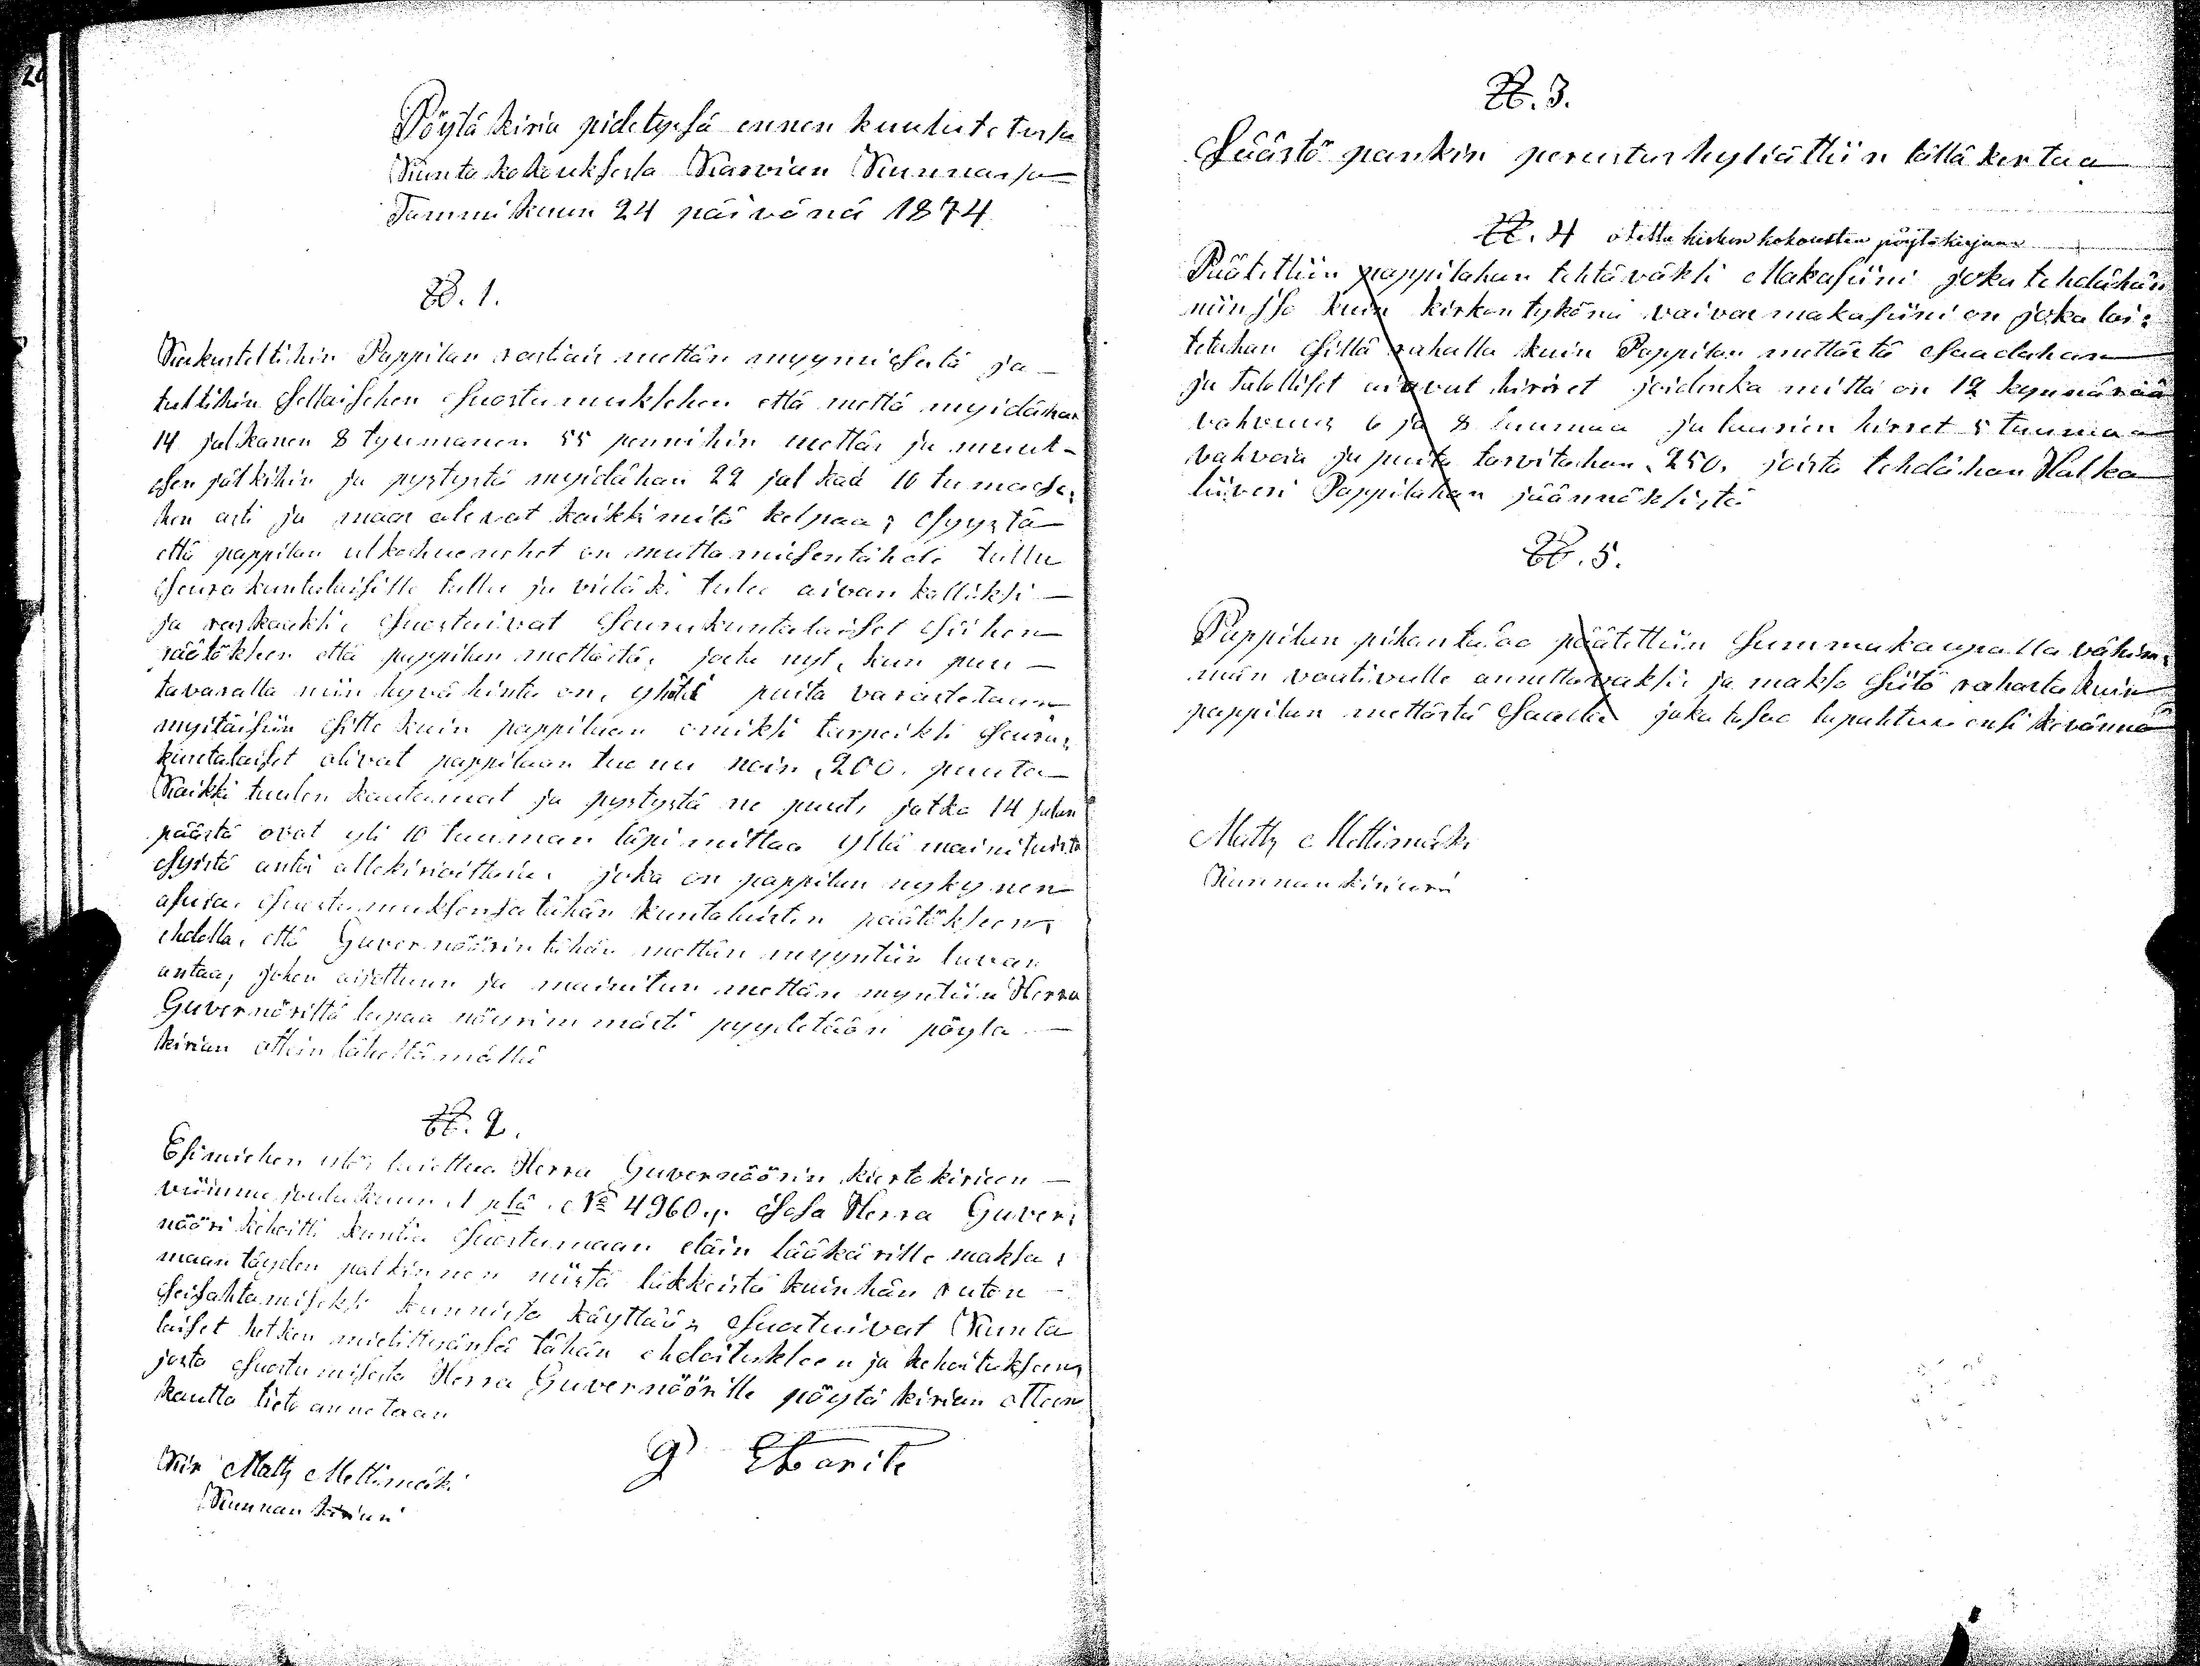 Pöytäkiria pidetysä ennen kuulutetusa
Kunta kokouksesta Karvian Kunnassa
Tammikuun 24 päivänä 1874
§. 1.
Keskusteltihin Pappilan vastiais mettän myymisestä ja
tultihin sellaisehen suostumuksehen että mettä myidähän
14 jalkanen 8 tyumanen 55 pennihin mettäs ja muut-
sen jätkihin ja pystystä myidähän 22 jalkaa 10 tumaase,
hen asti ja maas olevat kaikki mitä kelpaa; Syystä
että pappilan ulkohuonehet on muttamisentähde tullu
seurakuntalaisille tullu ja vieläki tulee aivan kalliiksi
ja raskaaksi, Suostuivat Seurakuntalaiset siihen
päätökshen että pappilan mettästä, josta nyt, kun puu-
tavaralla niin hyvä hinta on, yhtä puita varastetaan
myitäisiin sille kuin pappilaan omiksi tarpeiksi Seura,
kuntalaiset olivat pappilaan tuonu noin 200. puuta
Kaikki tuulen kaatamat ja pystystä ne puut, jotka 14 jalan
päästä ovat yli 10 tuuman läpimittaa Yllä mainituista
syistä antoi allekirioittain, joka on pappilan nykynen
asuia, Suostumuksensa tähän kuntalaisten päätökseen,
ehdolla, että Guvernöörin tähän mettän myyntiin luvan
antaa, johon aijottuun ja mainitun mettän myntiin Herra
Guvernöriltä lupaa nöyrimmästi pyydetään pöytä
kirian ottein lähettämällä
§. 2.
Esimiehen ulos luettua Herra Guvernöörin kiertokirieen
viimme joulukuun 1 ptä No 4960, josa Herra Guver,
nööri kehoitti kuntia suostumaan eläin lääkärille maksa,
maan täyden palkinnon niistä liikkeistä kuin hän ruton
seisahtamiseksi kunnista käyttää, Suostuivat Kunta
laiset hetken mielittyänsä tähän ehdoitukseen ja kehoitukseen,
josta suostumisesta Herra Guvernöörille pöytäkirian otteen
kautta tieto annetaan
Kir Matts Mettimäki
Kunnan kiriuri
§. 3.
Säästö pankin perustus hyliättiin tällä kertaa
§. 4 otettu kirkon kokousten pöytäkirjaan
Päätettiin pappilahan tehtäväksi Makasiini joka tehdähän
niin iso kuin kirkon tykönä vaivas makasiini on joka lai:
tetahan sillä rahalla kuin Pappilan mettästä saadahan
ja talolliset aiavat hirret joidenka mitta on 12 kynnärää
vahvuus 6 ja 8 tuumaa ja luusien hirret 5 tuumaa
vahvoia ja puita tarvitahan 250, joista tehdähän Halko
liiveri Pappilahan jäännöksistä
§. 5.
Pappilan pihantalaa päätettiin Summakaupalla vähim,
män vaativalle annettavaksi ja maksa siitä rahasta kuin
pappilan mettästä saadan joka tulee tapahtuu ensi kevännä
Matts Mettimäki
Kunnan kiriuri